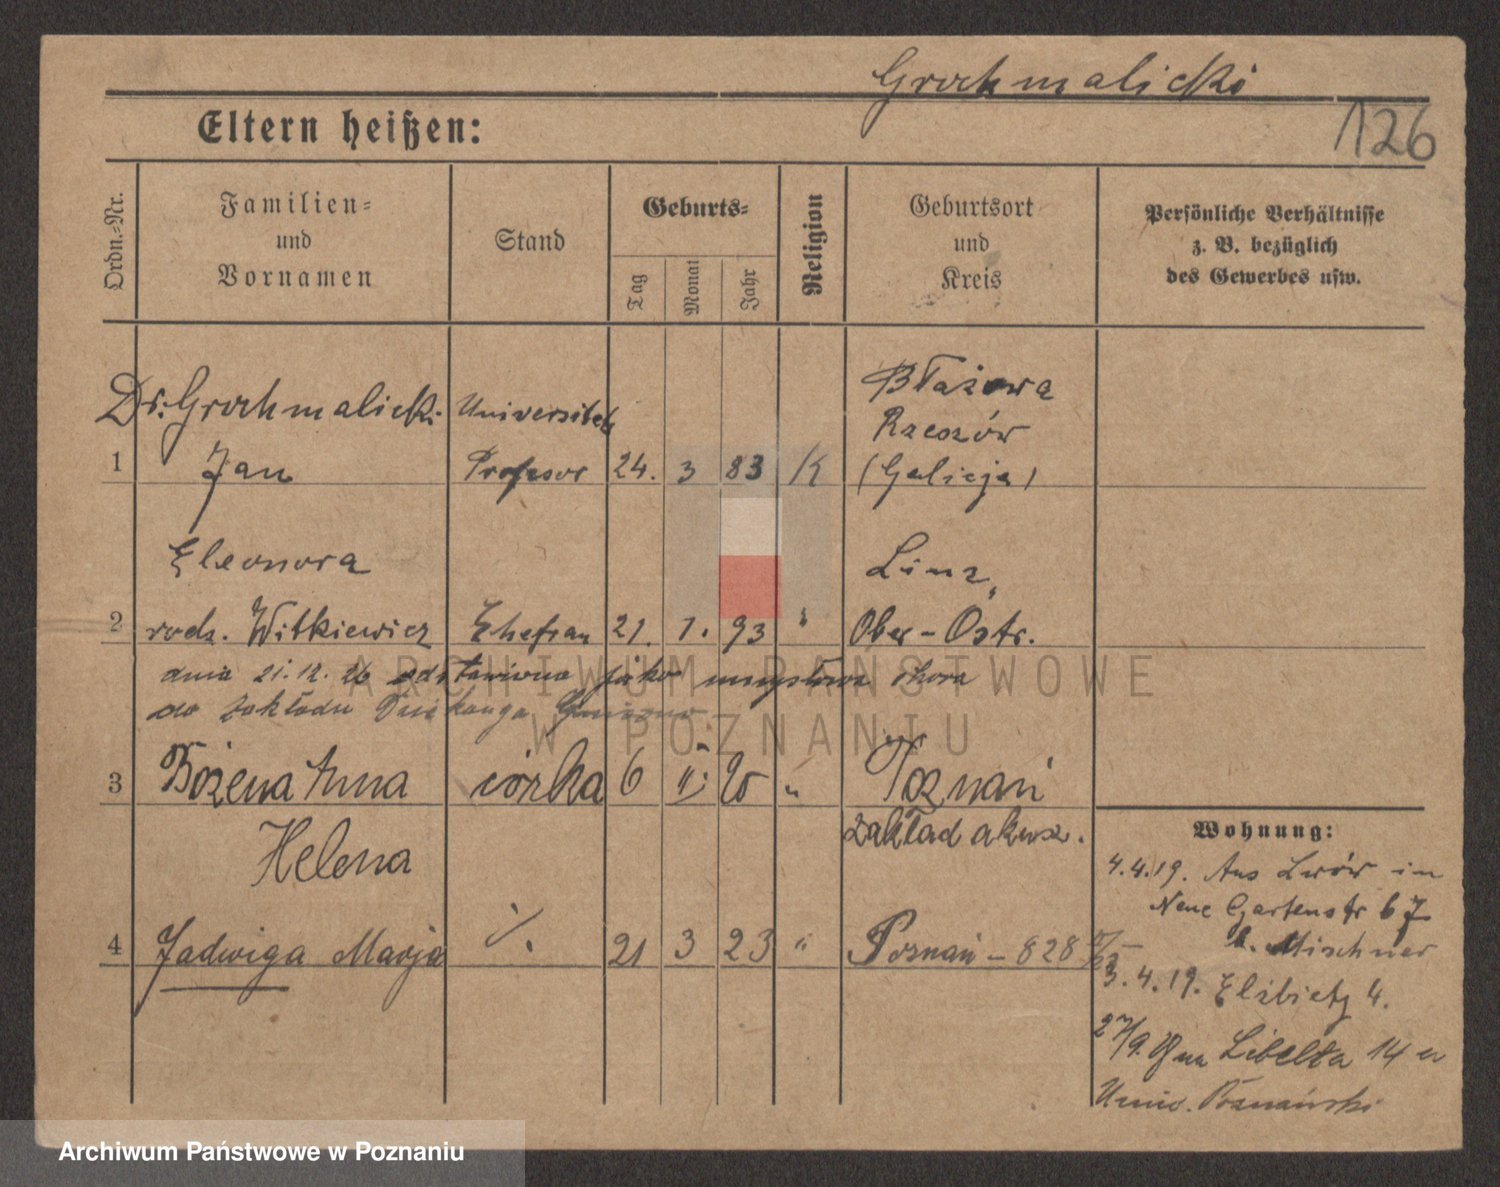 Grochmalicki
126
Eltern heißen:
Ordn.-Nr.
Familien-
und
Vornamen
Stand
Geburts-
Tag
Monat
Jahr
Religion
Geburtsort
und
Kreis
Persönliche Verhältnisse
z. B. bezüglich
des Gewerbes usw.
Dr. Grochmalicki Universitets Błażowa
Rzeszów
1 Jan Profesor 24. 3 83 K (Galicja)
Eleonora Linz,
2 rodz. Witkiewicz Ehefrau 21. 1. 93 " Ober-Östr.
dnia 21.12.26 odstawiona jako umysłowo chora
do Zakładu Dziekanka
3 Bożena Anna córka 6 II. 20 " Poznań
Helena zakład akusz.
4 Jadwiga Marja ./. 21 3 23 " Poznań - 828
Wohnung:
4.4.19. Aus Lwów in
Neue Gartenstr 67
b. Mischner
3.4.19. Elżbiety 4.
27/9. Libelta 14 a
Uniw. Poznański
ARCHIWUM PAŃSTWOWE
W POZNANIU
Archiwum Państwowe w Poznaniu